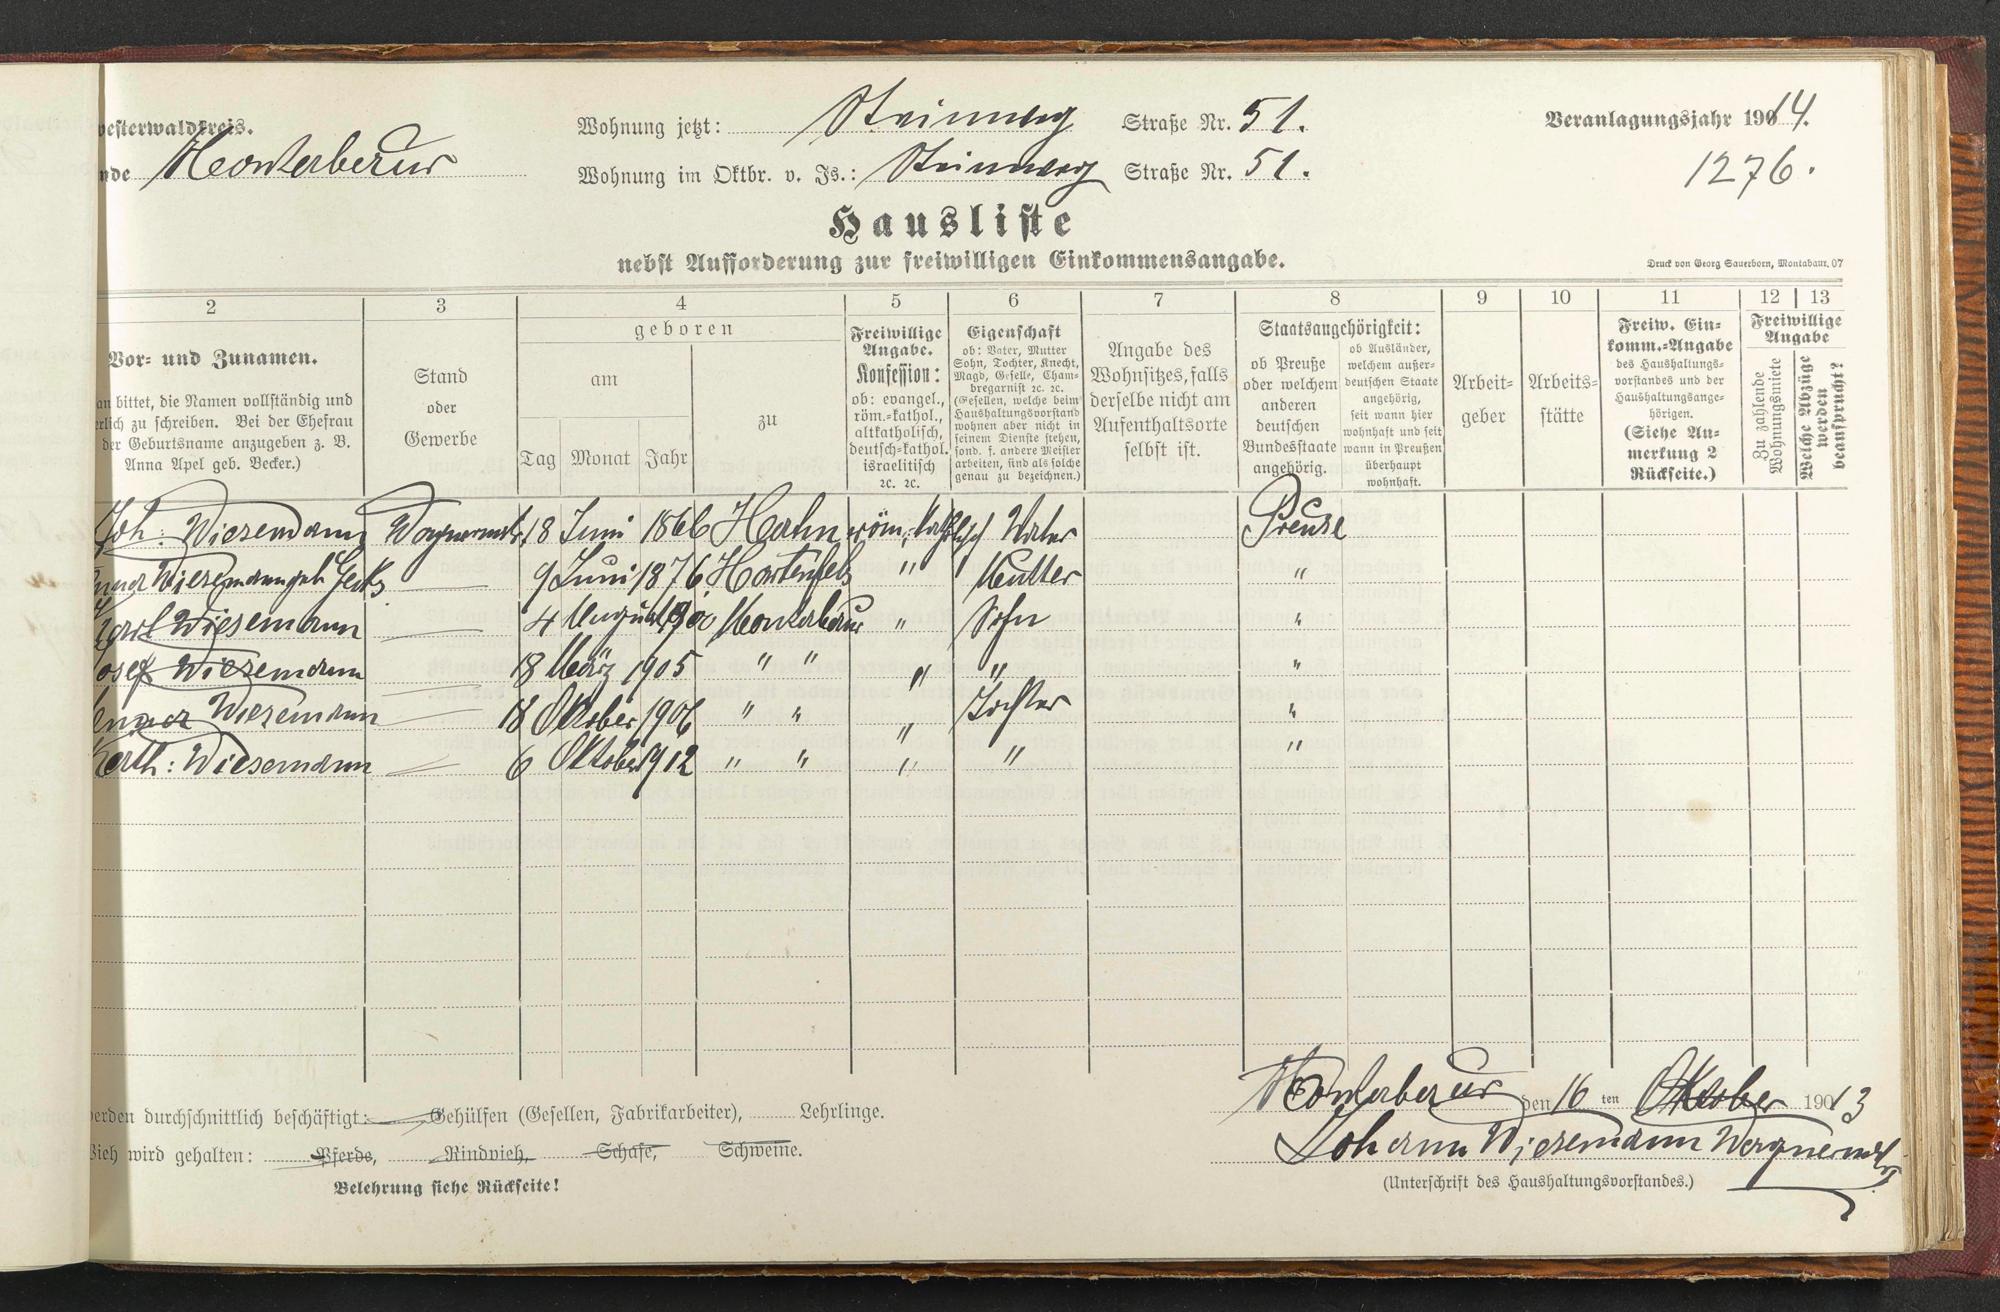 westerwaldkreis.
nde Montabaur
Wohnung jetzt: Steinweg Straße Nr. 51.
Wohnung im Oktbr. v. Js.: Steinweg Straße Nr. 51.
Veranlagungsjahr 1914.
1276.
Hausliste
nebst Aufforderung zur freiwilligen Einkommensangabe.
Druck von Georg Sauerborn, Montabaur. 07
2 3 4 5 6 7 8 9 10 11 12 13
Vor- und Zunamen.
an bittet, die Namen vollständig und
erlich zu schreiben. Bei der Ehefrau
der Geburtsname anzugeben z. B.
Anna Apel geb. Becker.)
Stand
oder
Gewerbe
geboren
am
Tag Monat Jahr
zu
Freiwillige
Angabe.
Konfession:
ob: evangel.,
röm.-kathol.,
altkatholisch,
deutsch-kathol.
israelitisch
ꝛc. ꝛc.
Eigenschaft
ob: Vater, Mutter
Sohn, Tochter, Knecht,
Magd, Geselle, Cham-
bregarnist ꝛc. ꝛc.
(Gesellen, welche beim
Haushaltungsvorstand
wohnen aber nicht in
seinem Dienste stehen,
sond. f. andere Meister
arbeiten, sind als solche
genau zu bezeichnen.)
Angabe des
Wohnsitzes, falls
derselbe nicht am
Aufenthaltsorte
selbst ist.
Staatsangehörigkeit:
ob Preuße
oder welchem
anderen
deutschen
Bundesstaate
angehörig.
ob Ausländer,
welchem außer-
deutschen Staate
angehörig,
seit wann hier
wohnhaft und seit
wann in Preußen
überhaupt
wohnhaft.
Arbeit-
geber
Arbeits-
stätte
Freiw. Ein-
komm.-Angabe
des Haushaltungs-
vorstandes und der
Haushaltungsange-
hörigen.
(Siehe An-
merkung 2
Rückseite.)
Freiwillige
Angabe
Zu zahlende
Wohnungsmiete
Welche Abzüge
werden
beansprucht?
Joh: Wiesemann Wagnermstr. 18 Juni 1866 Hahn röm. katholisch Vater Preuse
Anna Wiesemann geb 9 Juni 1876 Hartenfels " Mutter "
Karl Wiesemann 4 August 1900 Montabaur " Sohn "
Josef Wiesemann 18 März 1905 " " " " "
Anna Wiesemann 18 Oktober 1906 " " " Tochter "
Kath: Wiesemann 6 Oktober 1912 " " " " "
Montabaur den 16 ten Oktober 1913
Johann Wiesemann Wagnermstr
(Unterschrift des Haushaltungsvorstandes.)
erden durchschnittlich beschäftigt: Gehülfen (Gesellen, Fabrikarbeiter), Lehrlinge.
Vieh wird gehalten: Pferde, Rindvieh, Schafe, Schweine.
Belehrung siehe Rückseite!